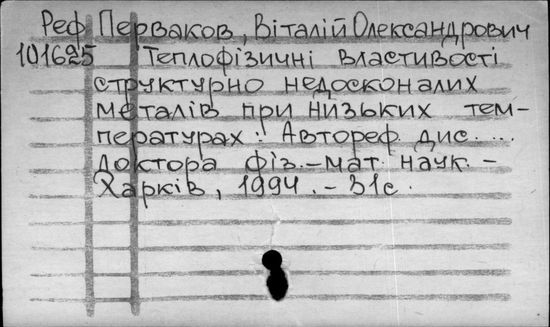 Реф Перваков, Віталій Олександрович
101625 Теплофізичні властивості
структурно недосконалих
металів при низьких тем-
пературах : Автореф. дис. ...
доктора фіз.-мат. наук. -
Харків, 1994. - 31с.